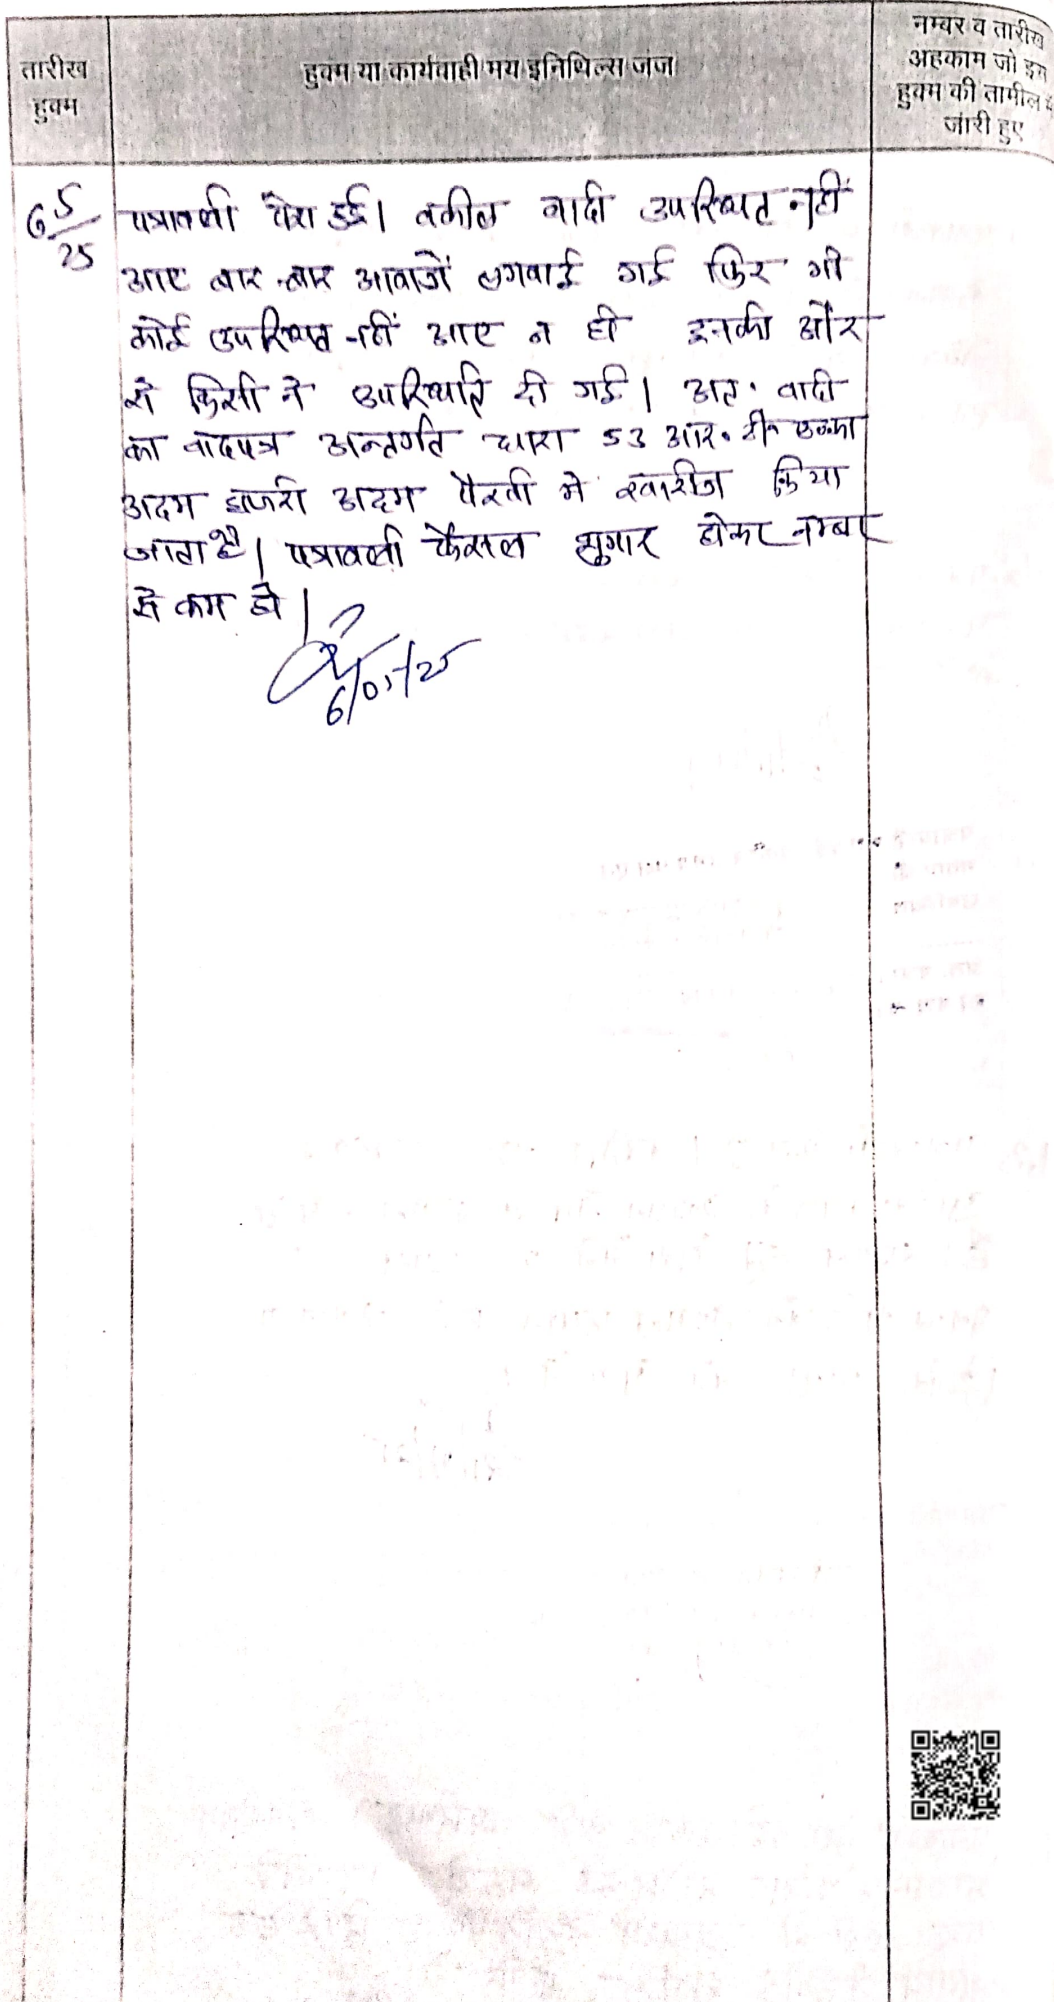 तारीख
हुक्म
हुक्म या कार्यवाही मय इनिशिल्स जज
नम्बर व तारीख
अहकाम जो इस
हुक्म की तामील में
जारी हुए
6 5/25
पत्रावली पेश हुई। वकील वादी उपस्थित नहीं
आए बार-बार आवाजें लगवाई गई फिर भी
कोई उपस्थित नहीं आए न ही इनकी और
से किसी ने उपस्थिति दी गई। अतः वादी
का वादपत्र अन्तर्गत धारा 53 आर. टी. एक्ट का
अदम हाजरी अदम पैरवी मे खारीज किया
जाता है। पत्रावली फैसल शुमार होकर नम्बर
से कम हो।
6/05/25